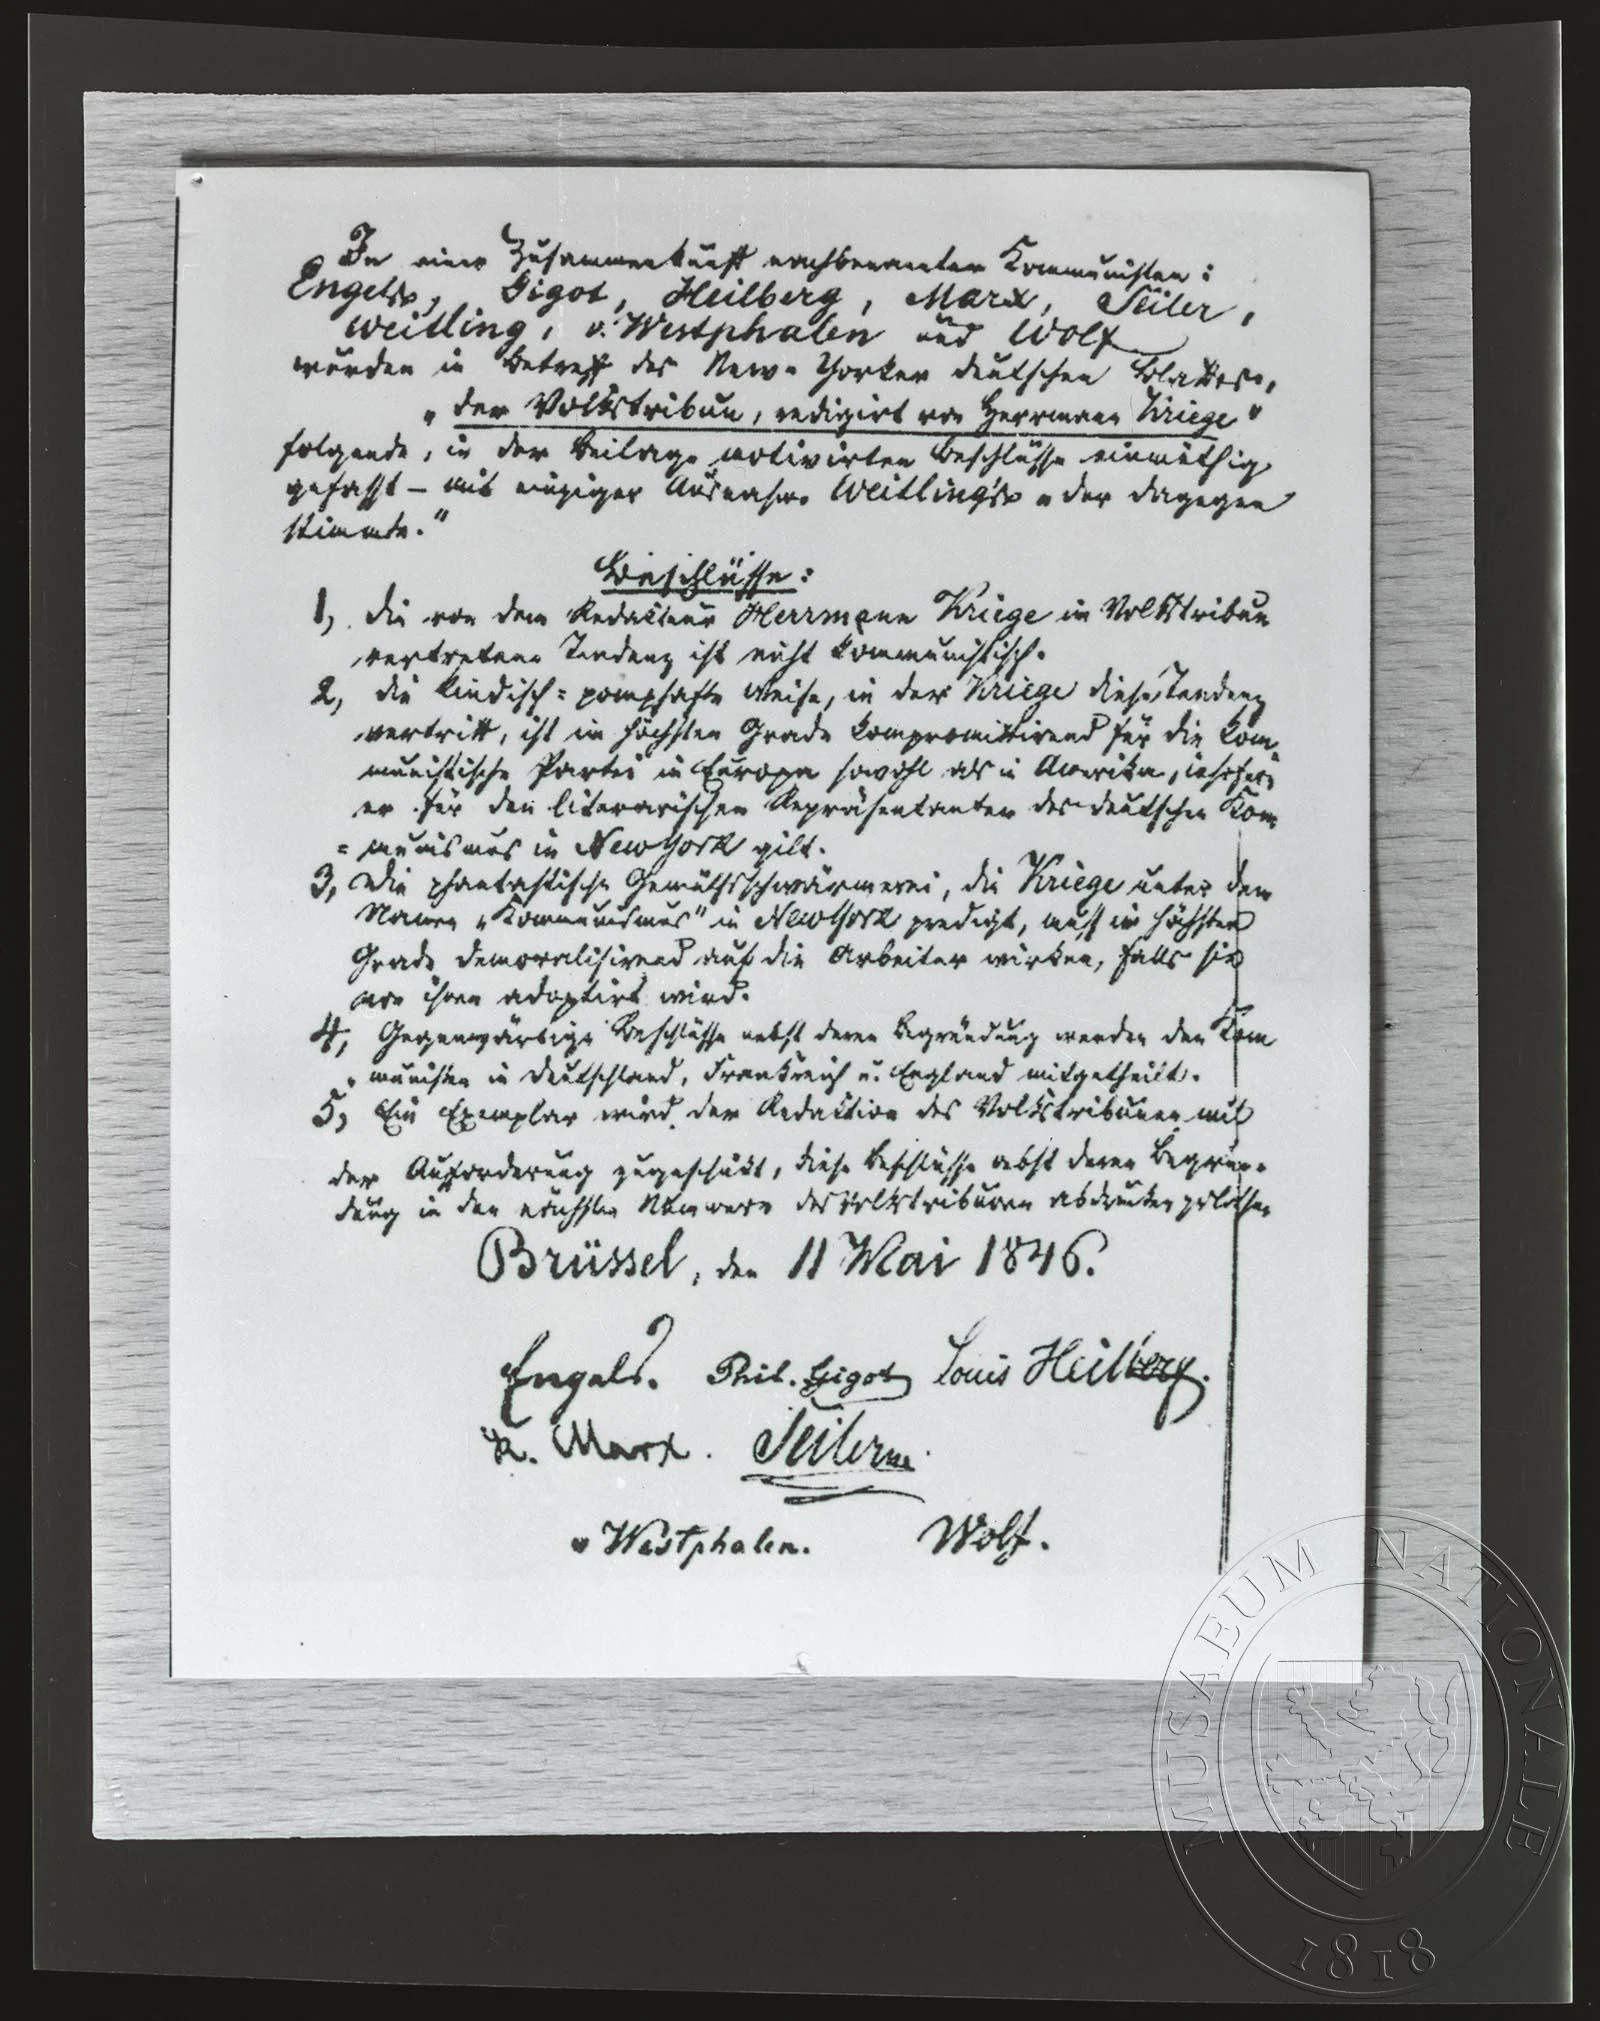 In einer Zusammenkunft nachbenannter Kommunisten:
Engels, Gigot, Heilberg, Marx, Seiler,
Weitling, v. Westphalen und Wolf
wurden in Betreff des New-Yorker deutschen Blattes,
"der Volkstribun, redigirt von Herrmann Kriege"
folgende, in der Beilage motivirten Beschlüsse einmüthig
gefasst – mit einziger Ausnahme Weitling's "der dagegen
stimmte."
Beschlüsse:
1, die von dem Redakteur Herrmann Kriege im Volkstribun
vertretene Tendenz ist nicht kommunistisch.
2, die kindisch=pomphafte Weise, in der Kriege diese Tendenz
vertritt, ist im höchsten Grade kompromittirend für die kom
munistische Partei in Europa sowohl als in Amerika, insofern
er für den literarischen Repräsentanten des deutschen Kom
=munismus in NewYork gilt.
3, die phantastische Gemüthsschwärmerei, die Kriege unter dem
Namen "Kommunismus" in NewYork predigt, muss im höchsten
Grade demoralisirend auf die Arbeiter wirken, falls sie
von ihnen adoptirt wird.
4, Gegenwärtige Beschlüsse nebst deren Begründung werden den Kom
munisten in Deutschland, Frankreich u. England mitgetheilt.
5, Ein Exemplar wird der Redaktion des Volkstribunen mit
der Aufforderung zugeschickt, diese Beschlüsse nebst deren Begrün-
dung in den nächsten Nummern des Volkstribunen abdrucken zu lassen
Brüssel, den 11 Mai 1846.
Engels. Phil. Gigot Louis Heilberg.
K. Marx. Seiler
v Westphalen. Wolf.
MUSAEUM NATIONALE
1818